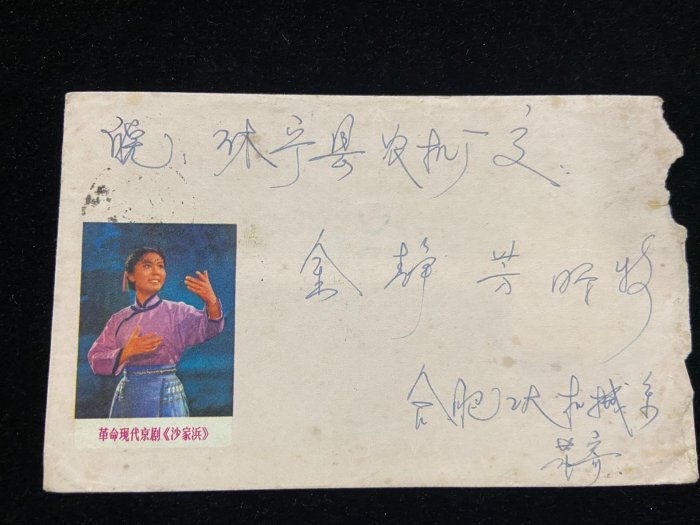 皖：休宁县农机厂交
金静芳师收
合肥工大机械系
革命现代京剧《沙家浜》